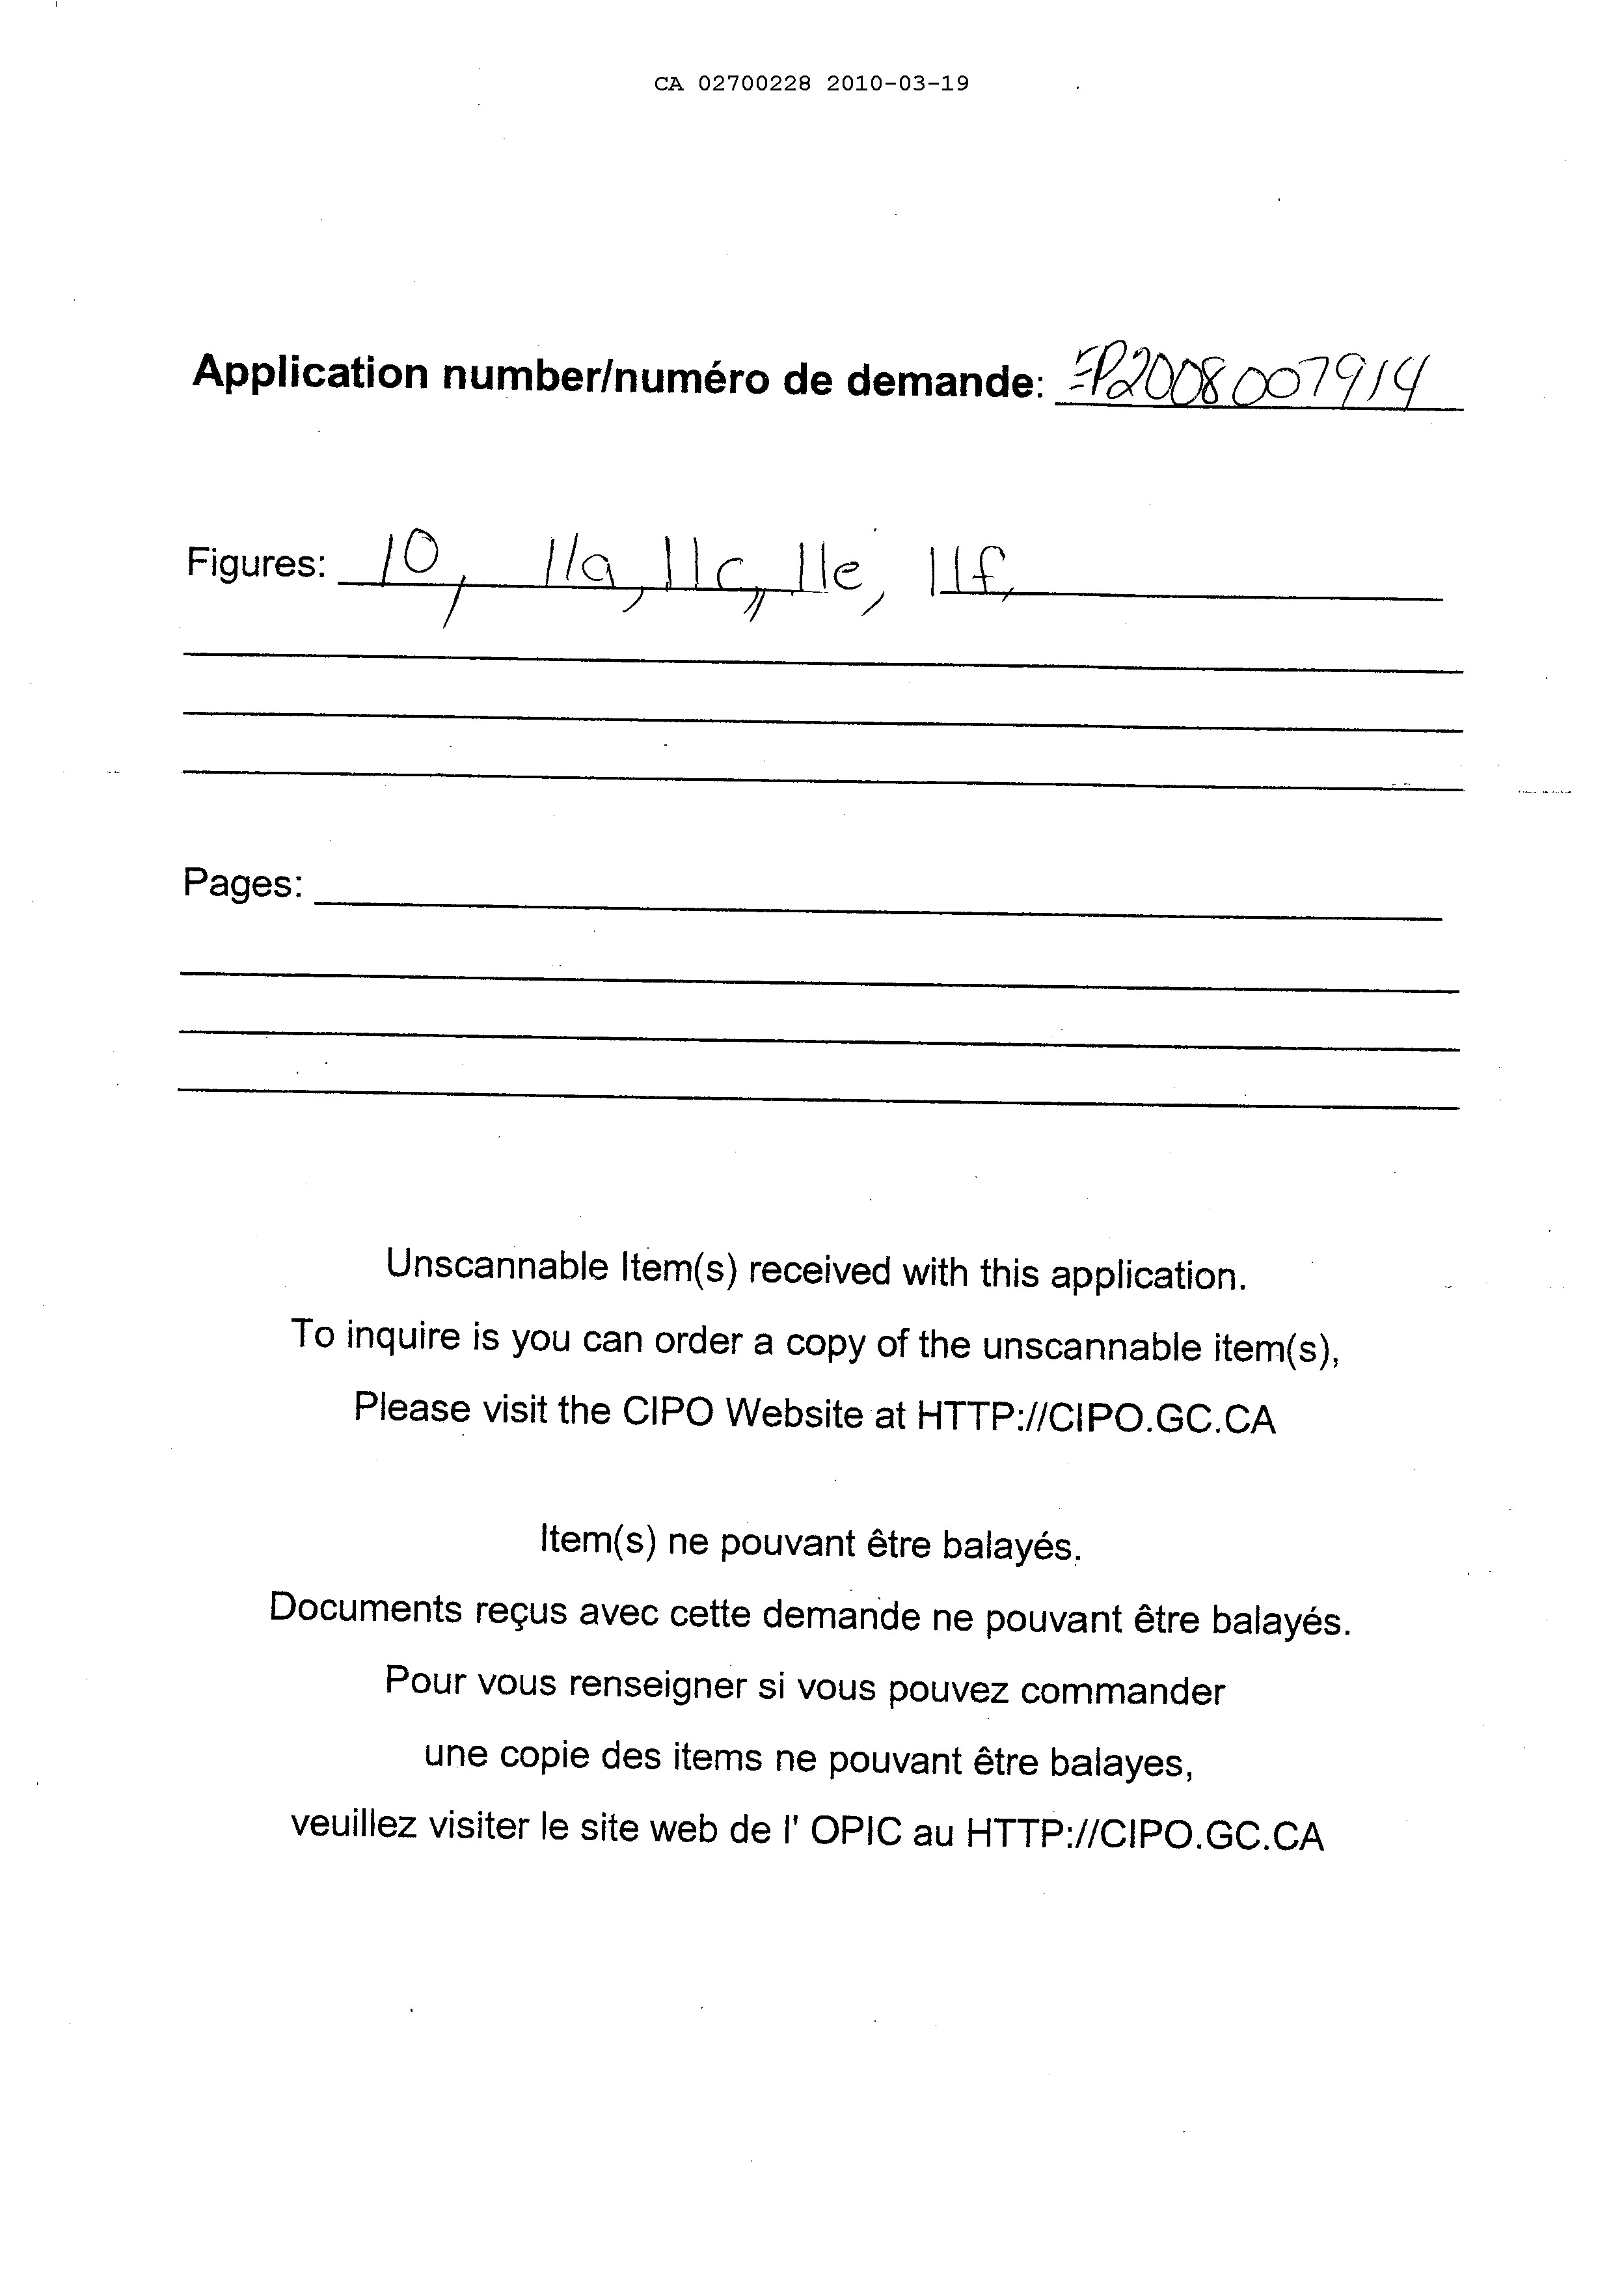 CA 02700228 2010-03-19
Application number/numéro de demande: EP2008007914
Figures: 10, 11a, 11c, 11e, 11f,
Pages:
Unscannable Item(s) received with this application.
To inquire is you can order a copy of the unscannable item(s),
Please visit the CIPO Website at HTTP://CIPO.GC.CA
Item(s) ne pouvant être balayés.
Documents reçus avec cette demande ne pouvant être balayés.
Pour vous renseigner si vous pouvez commander
une copie des items ne pouvant être balayes,
veuillez visiter le site web de l' OPIC au HTTP://CIPO.GC.CA